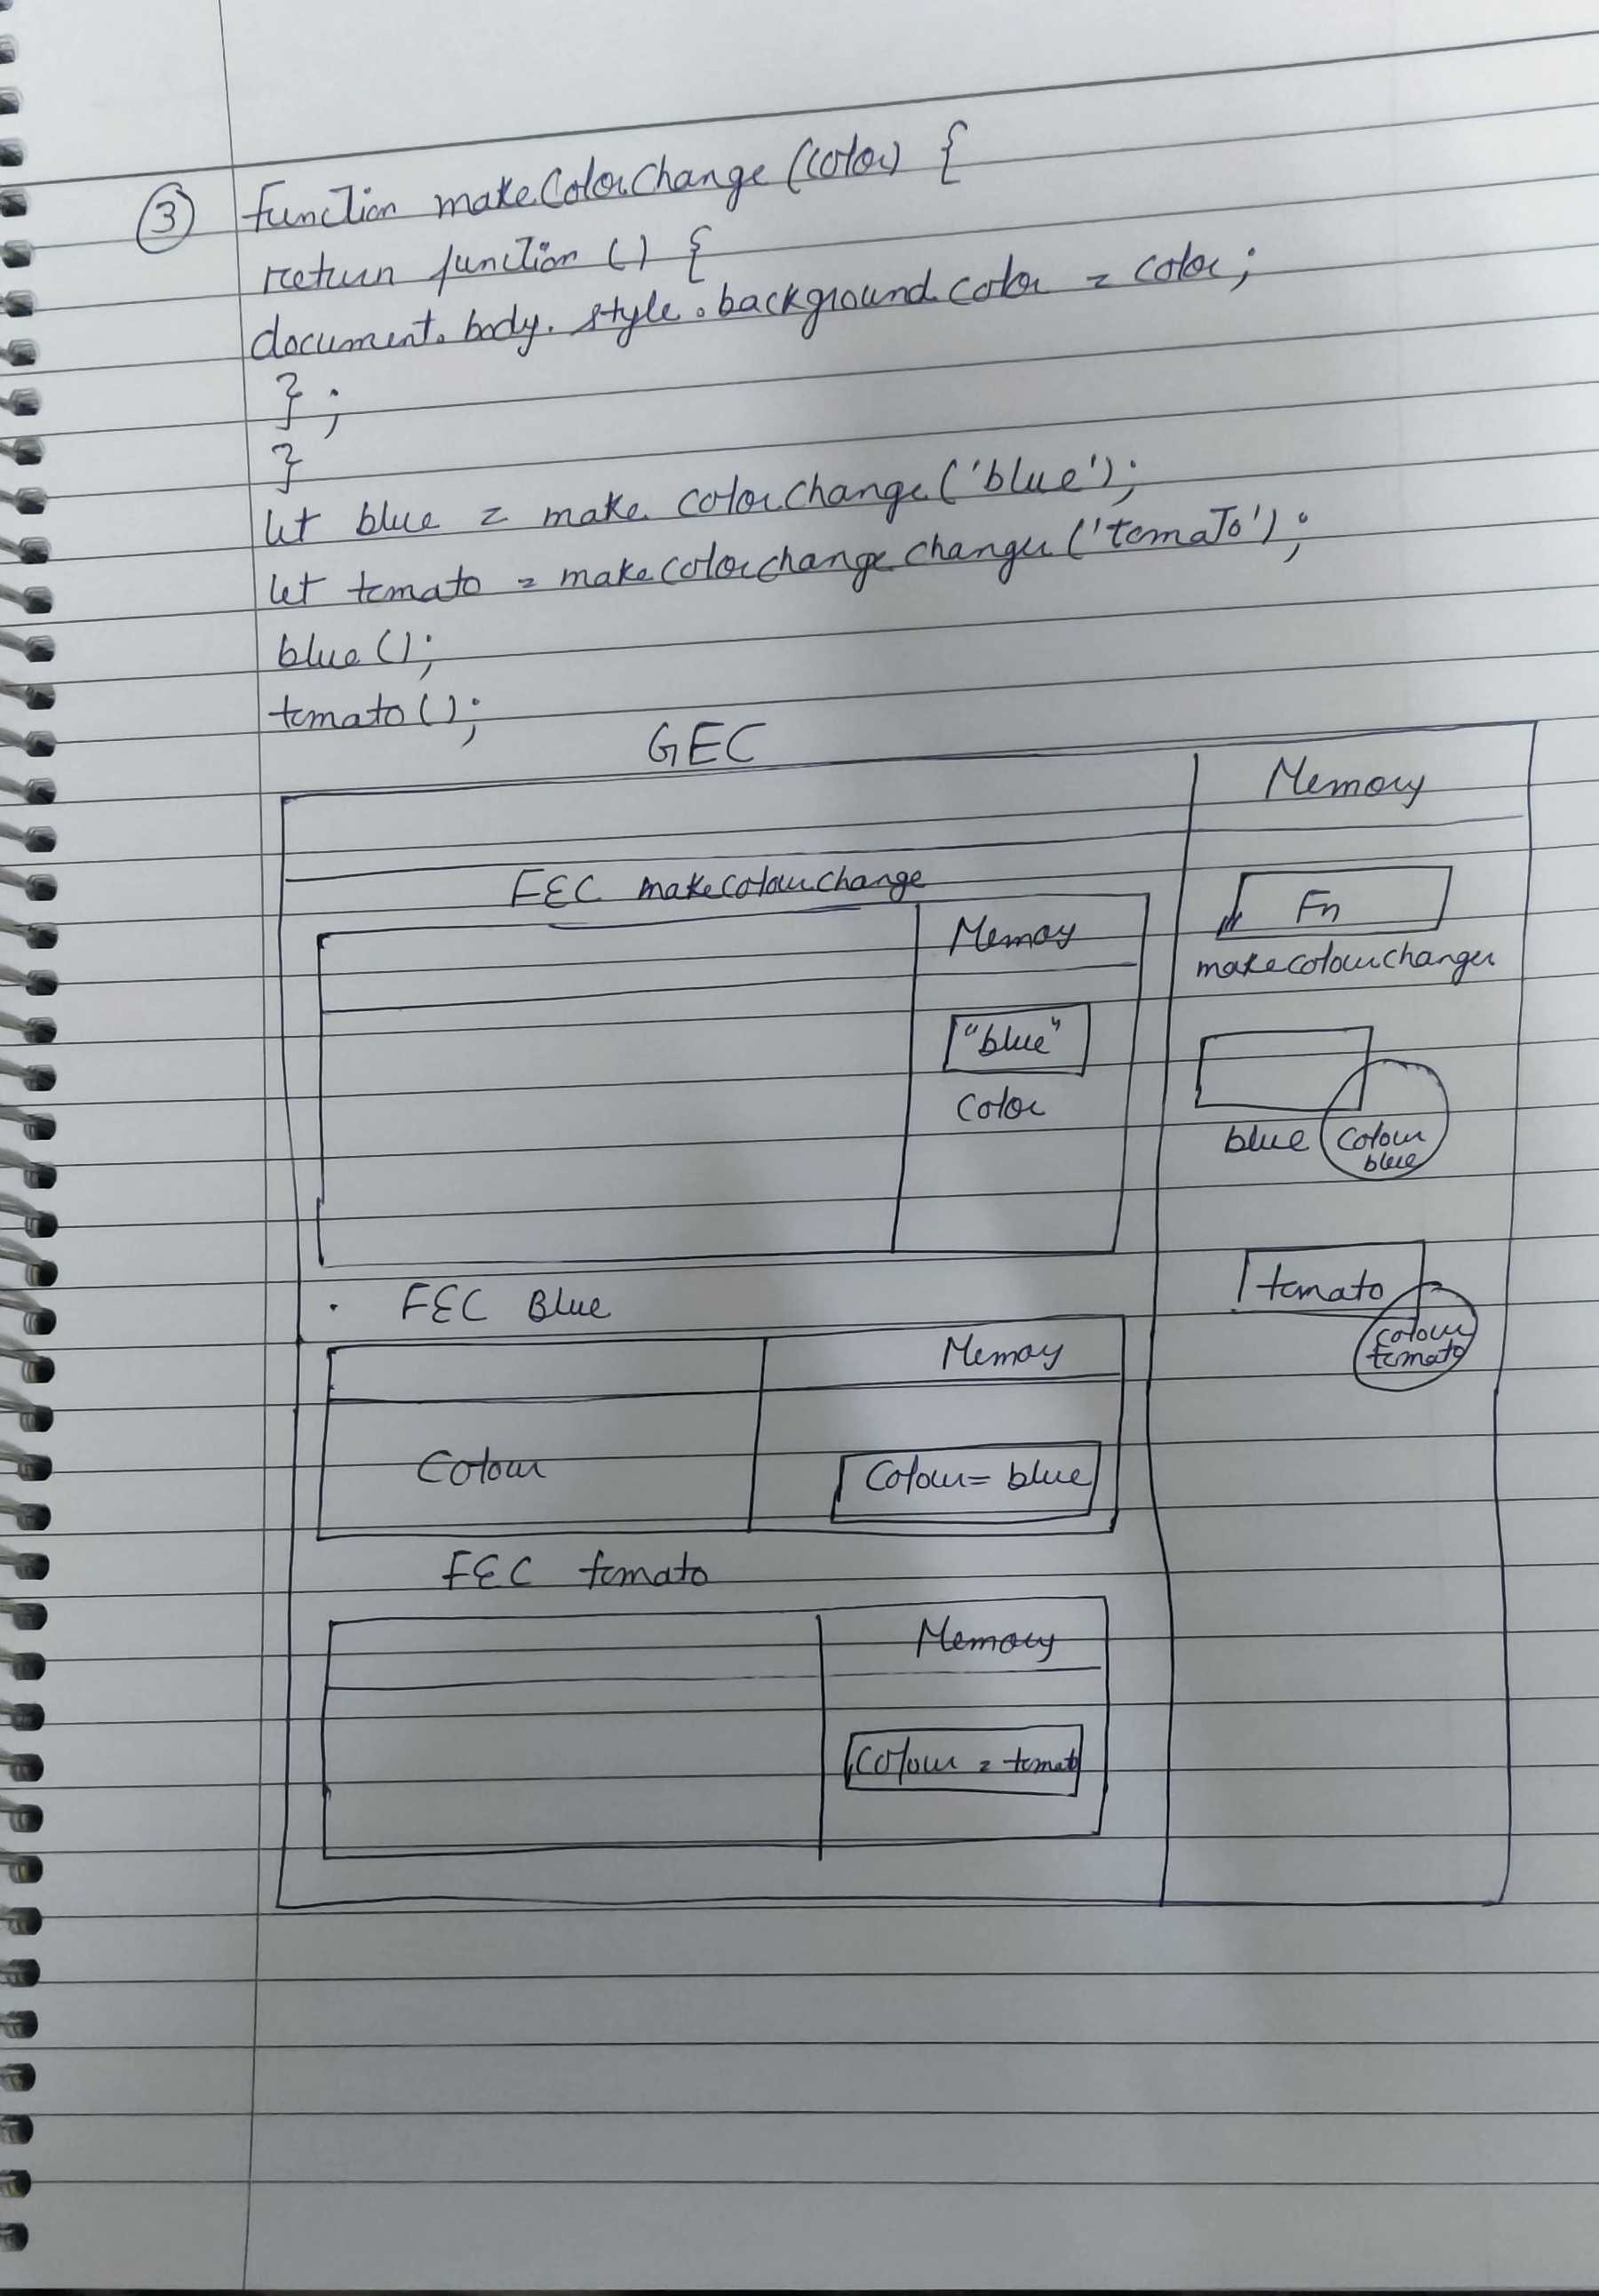 ③ function makeColorChange (color) {
return function () {
document.body.style.backgroundcolor = color;
};
}
let blue = make colorchange('blue');
let tomato = makecolorchangechanger('tomato');
blue();
tomato();
GEC
Memory
FEC makecolourchange
Fn
Memoy
makecolourchanger
"blue"
color
blue
colour
blue
FEC Blue
tomato
colour
tomato
Memoy
Colour
Colour= blue
FEC tomato
Memory
colour = tomato